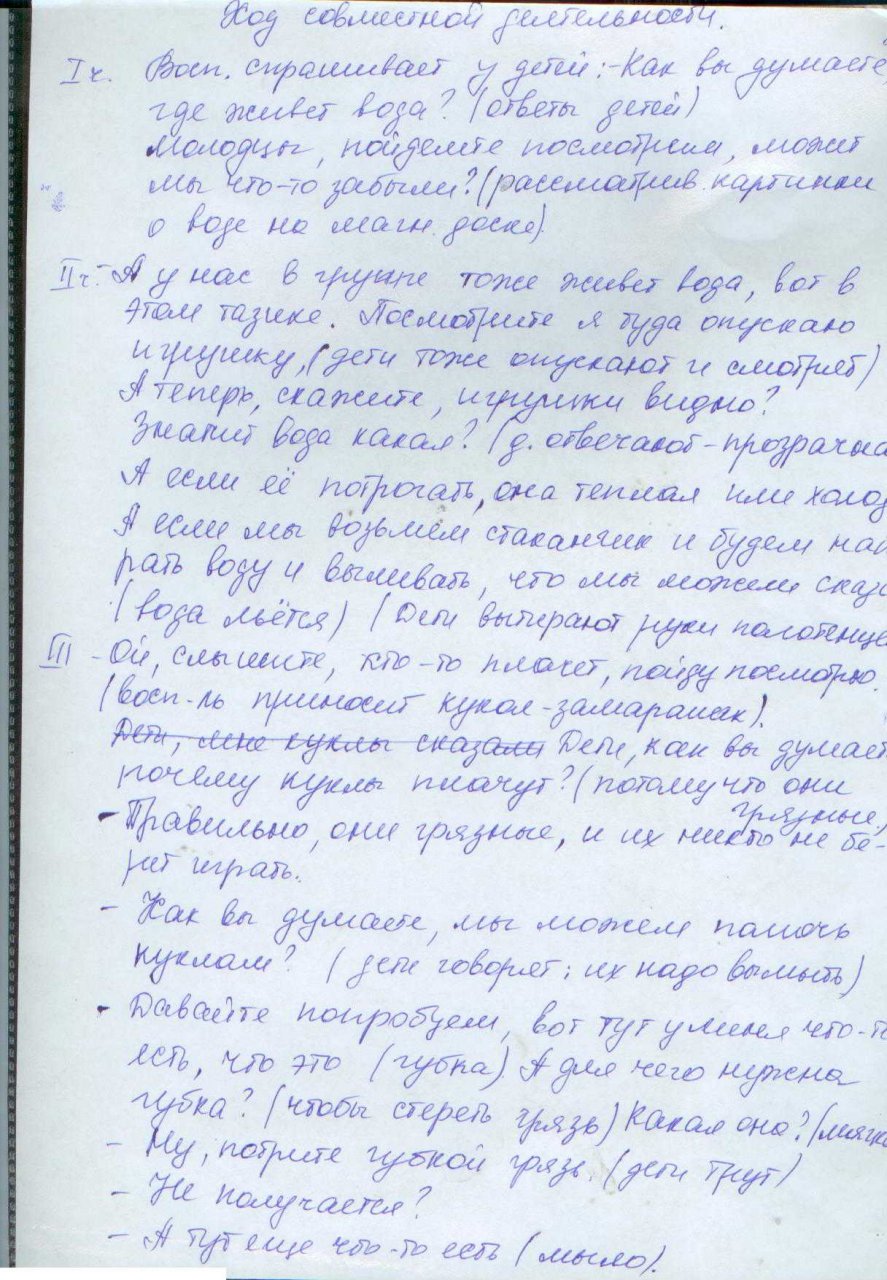 Ход совместной деятельности.
I ч. Восп. спрашивает у детей: -Как вы думаете
где живет вода? (ответы детей)
молодцы, пойдемте посмотрим, может
мы что-то забыли? (рассматрив. картинки
о воде на магн. доске)
II ч. А у нас в группе тоже живет вода, вот в
этом тазике. Посмотрите я туда опускаю
игрушку, (дети тоже опускают и смотрят)
А теперь, скажите, игрушки видно?
Значит вода какая? (д. отвечают - прозрачна
А если её потрогать, она теплая или холод
А если мы возьмем стаканчик и будем наби
рать воду и выливать, что мы можем сказ
(вода льётся) (Дети вытирают руки полотенце
III - Ой, слышите, кто-то плачет, пойду посмотрю.
(восп-ль приносит кукол-замарашек).
Дети, мне куклы сказали Дети, как вы думает
почему куклы плачут? (потому что они
грязные)
- Правильно, они грязные, и их никто не бе-
рет играть.
- Как вы думаете, мы можем памочь
куклам? (дети говорят: их надо вымыть)
- Давайте попробуем, вот тут у меня что-то
есть, что это (губка) А для чего нужна
губка? (чтобы стереть грязь) Какая она? (мягка
- Ну, потрите губкой грязь. (дети трут)
- Не получается?
- А тут еще что-то есть (мыло).